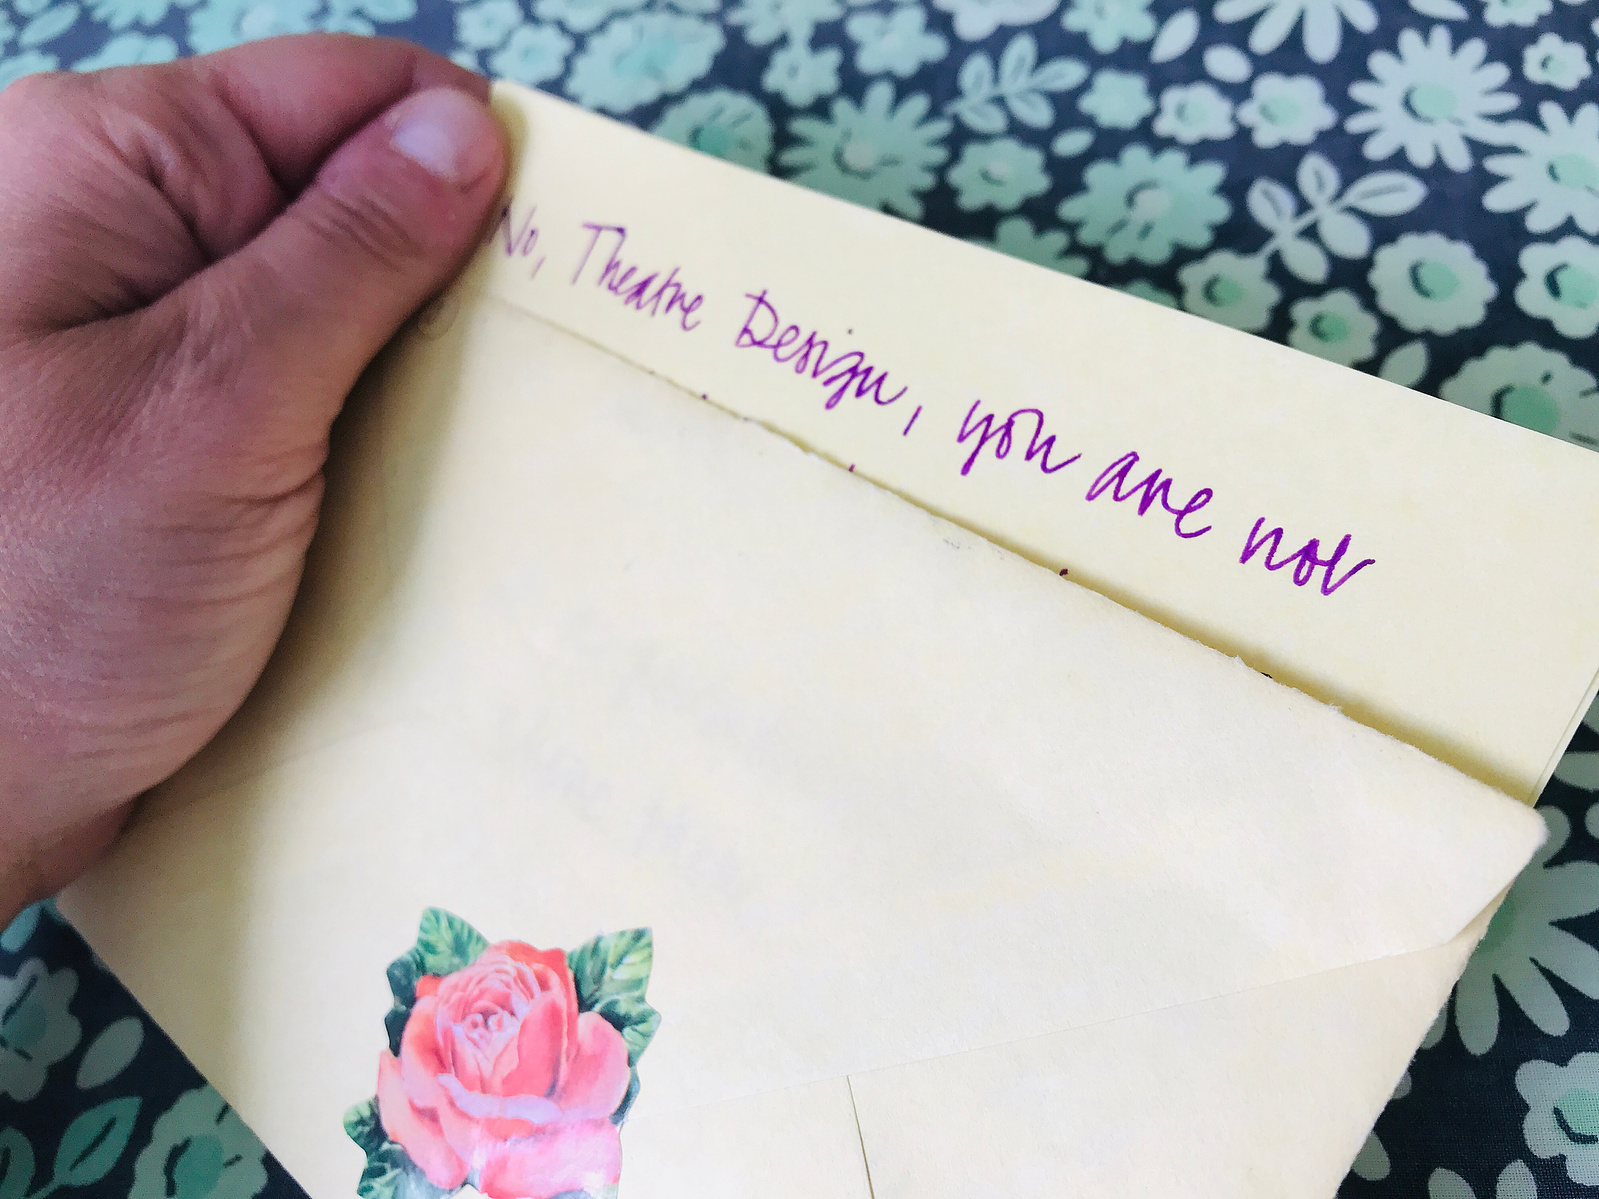 No, Theatre Design, you are not